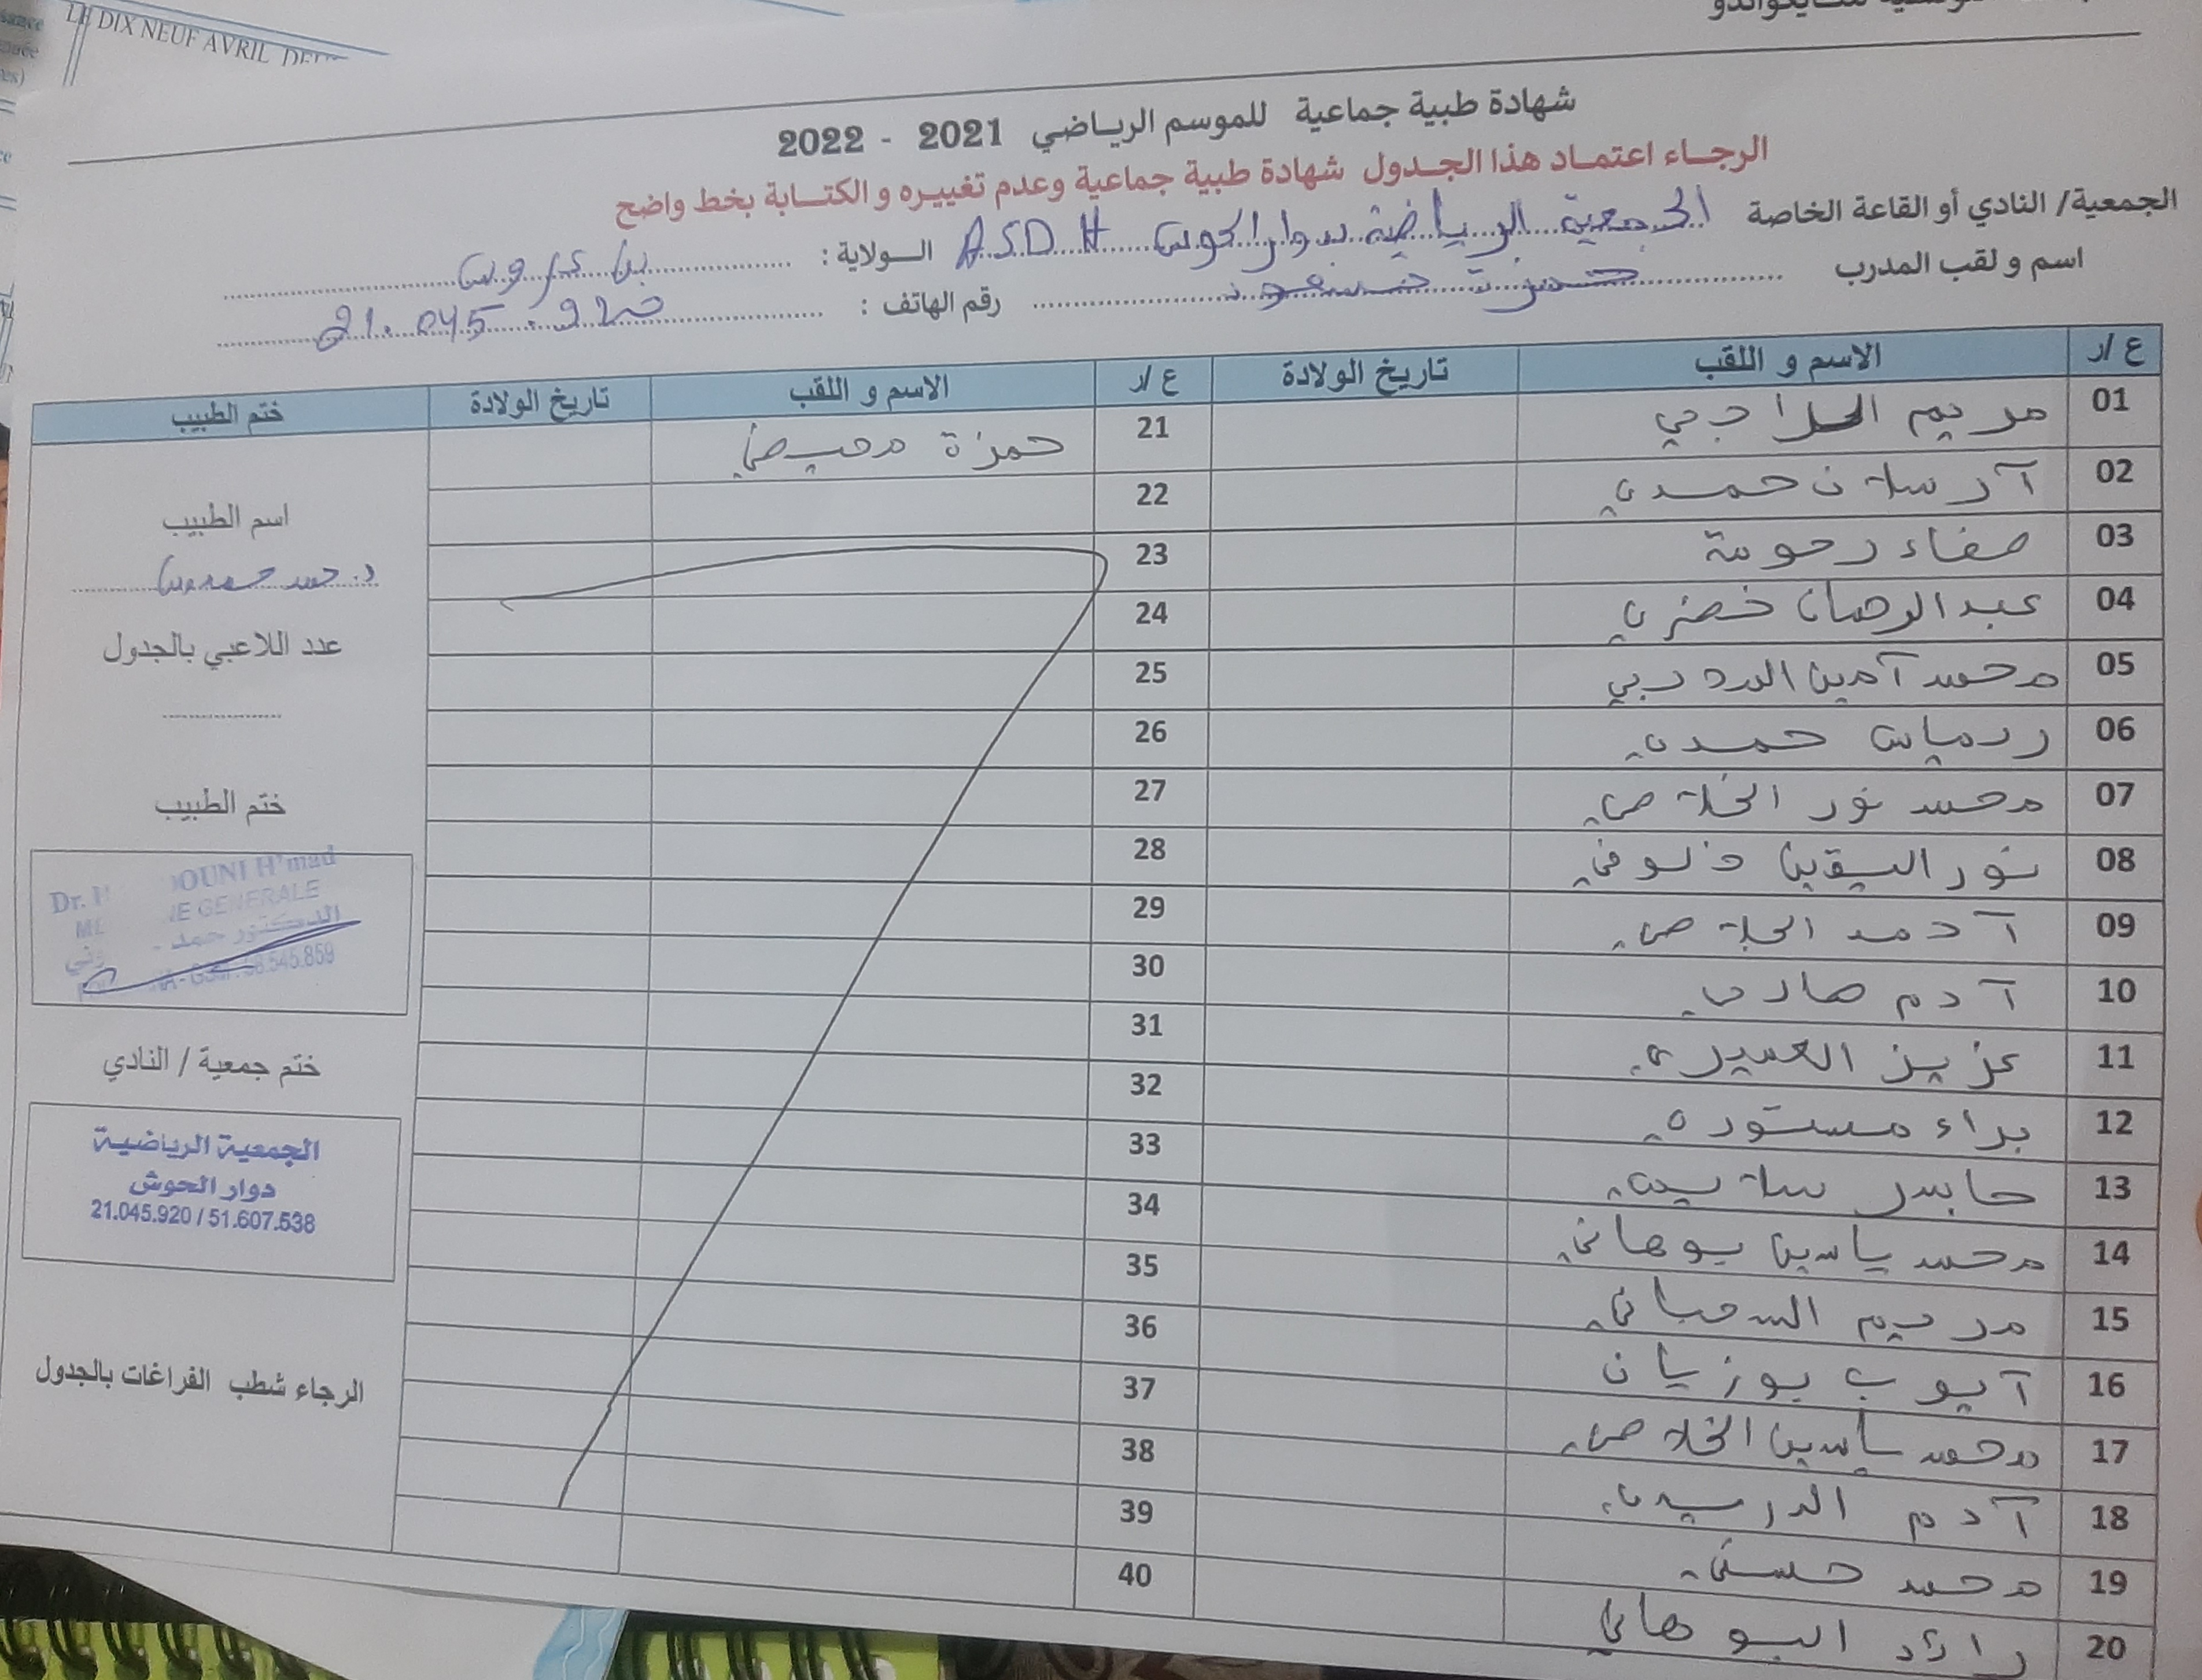 LE DIX NEUF AVRIL
شهادة طبية جماعية للموسم الرياضي 2021 - 2022
الرجاء اعتماد هذا الجدول شهادة طبية جماعية وعدم تغييره و الكتابة بخط واضح
الجمعية/ النادي أو القاعة الخاصة الجمعية الرياضية بدوار الحوش A.S.D.H الولاية : بن عروس
اسم و لقب المدرب حمزة مسعود رقم الهاتف : 21.045.920
ع /ر الاسم و اللقب تاريخ الولادة ع /ر الاسم و اللقب تاريخ الولادة ختم الطبيب
01 مريم 21 حمزة
02 آرسلان حمدي 22
اسم الطبيب
03 صفاء رحومة 23
د.
04 عبد الرحمان خضري 24
عدد اللاعبي بالجدول
05 محمد آمين 25
06 حمدي 26
07 محمد نور الخلاصي 27
ختم الطبيب
08 نور اليقين 28
Dr. H OUNI H'mad
NE GENERALE
الدكتور حمد
وني
58.545.859
09 29
10 آدم 30
11 عزيز العميري 31
ختم جمعية / النادي
12 براء مستوري 32
الجمعية الرياضية
دوار الحوش
21.045.920 / 51.607.538
13 33
14 محمد ياسين بوهاني 34
15 مريم السحباني 35
16 آيوب بوزيان 36
الرجاء شطب الفراغات بالجدول
17 محمد ياسين الخلاصي 37
18 آدم الدريدي 38
19 محمد حسني 39
20 رائد البوهاني 40